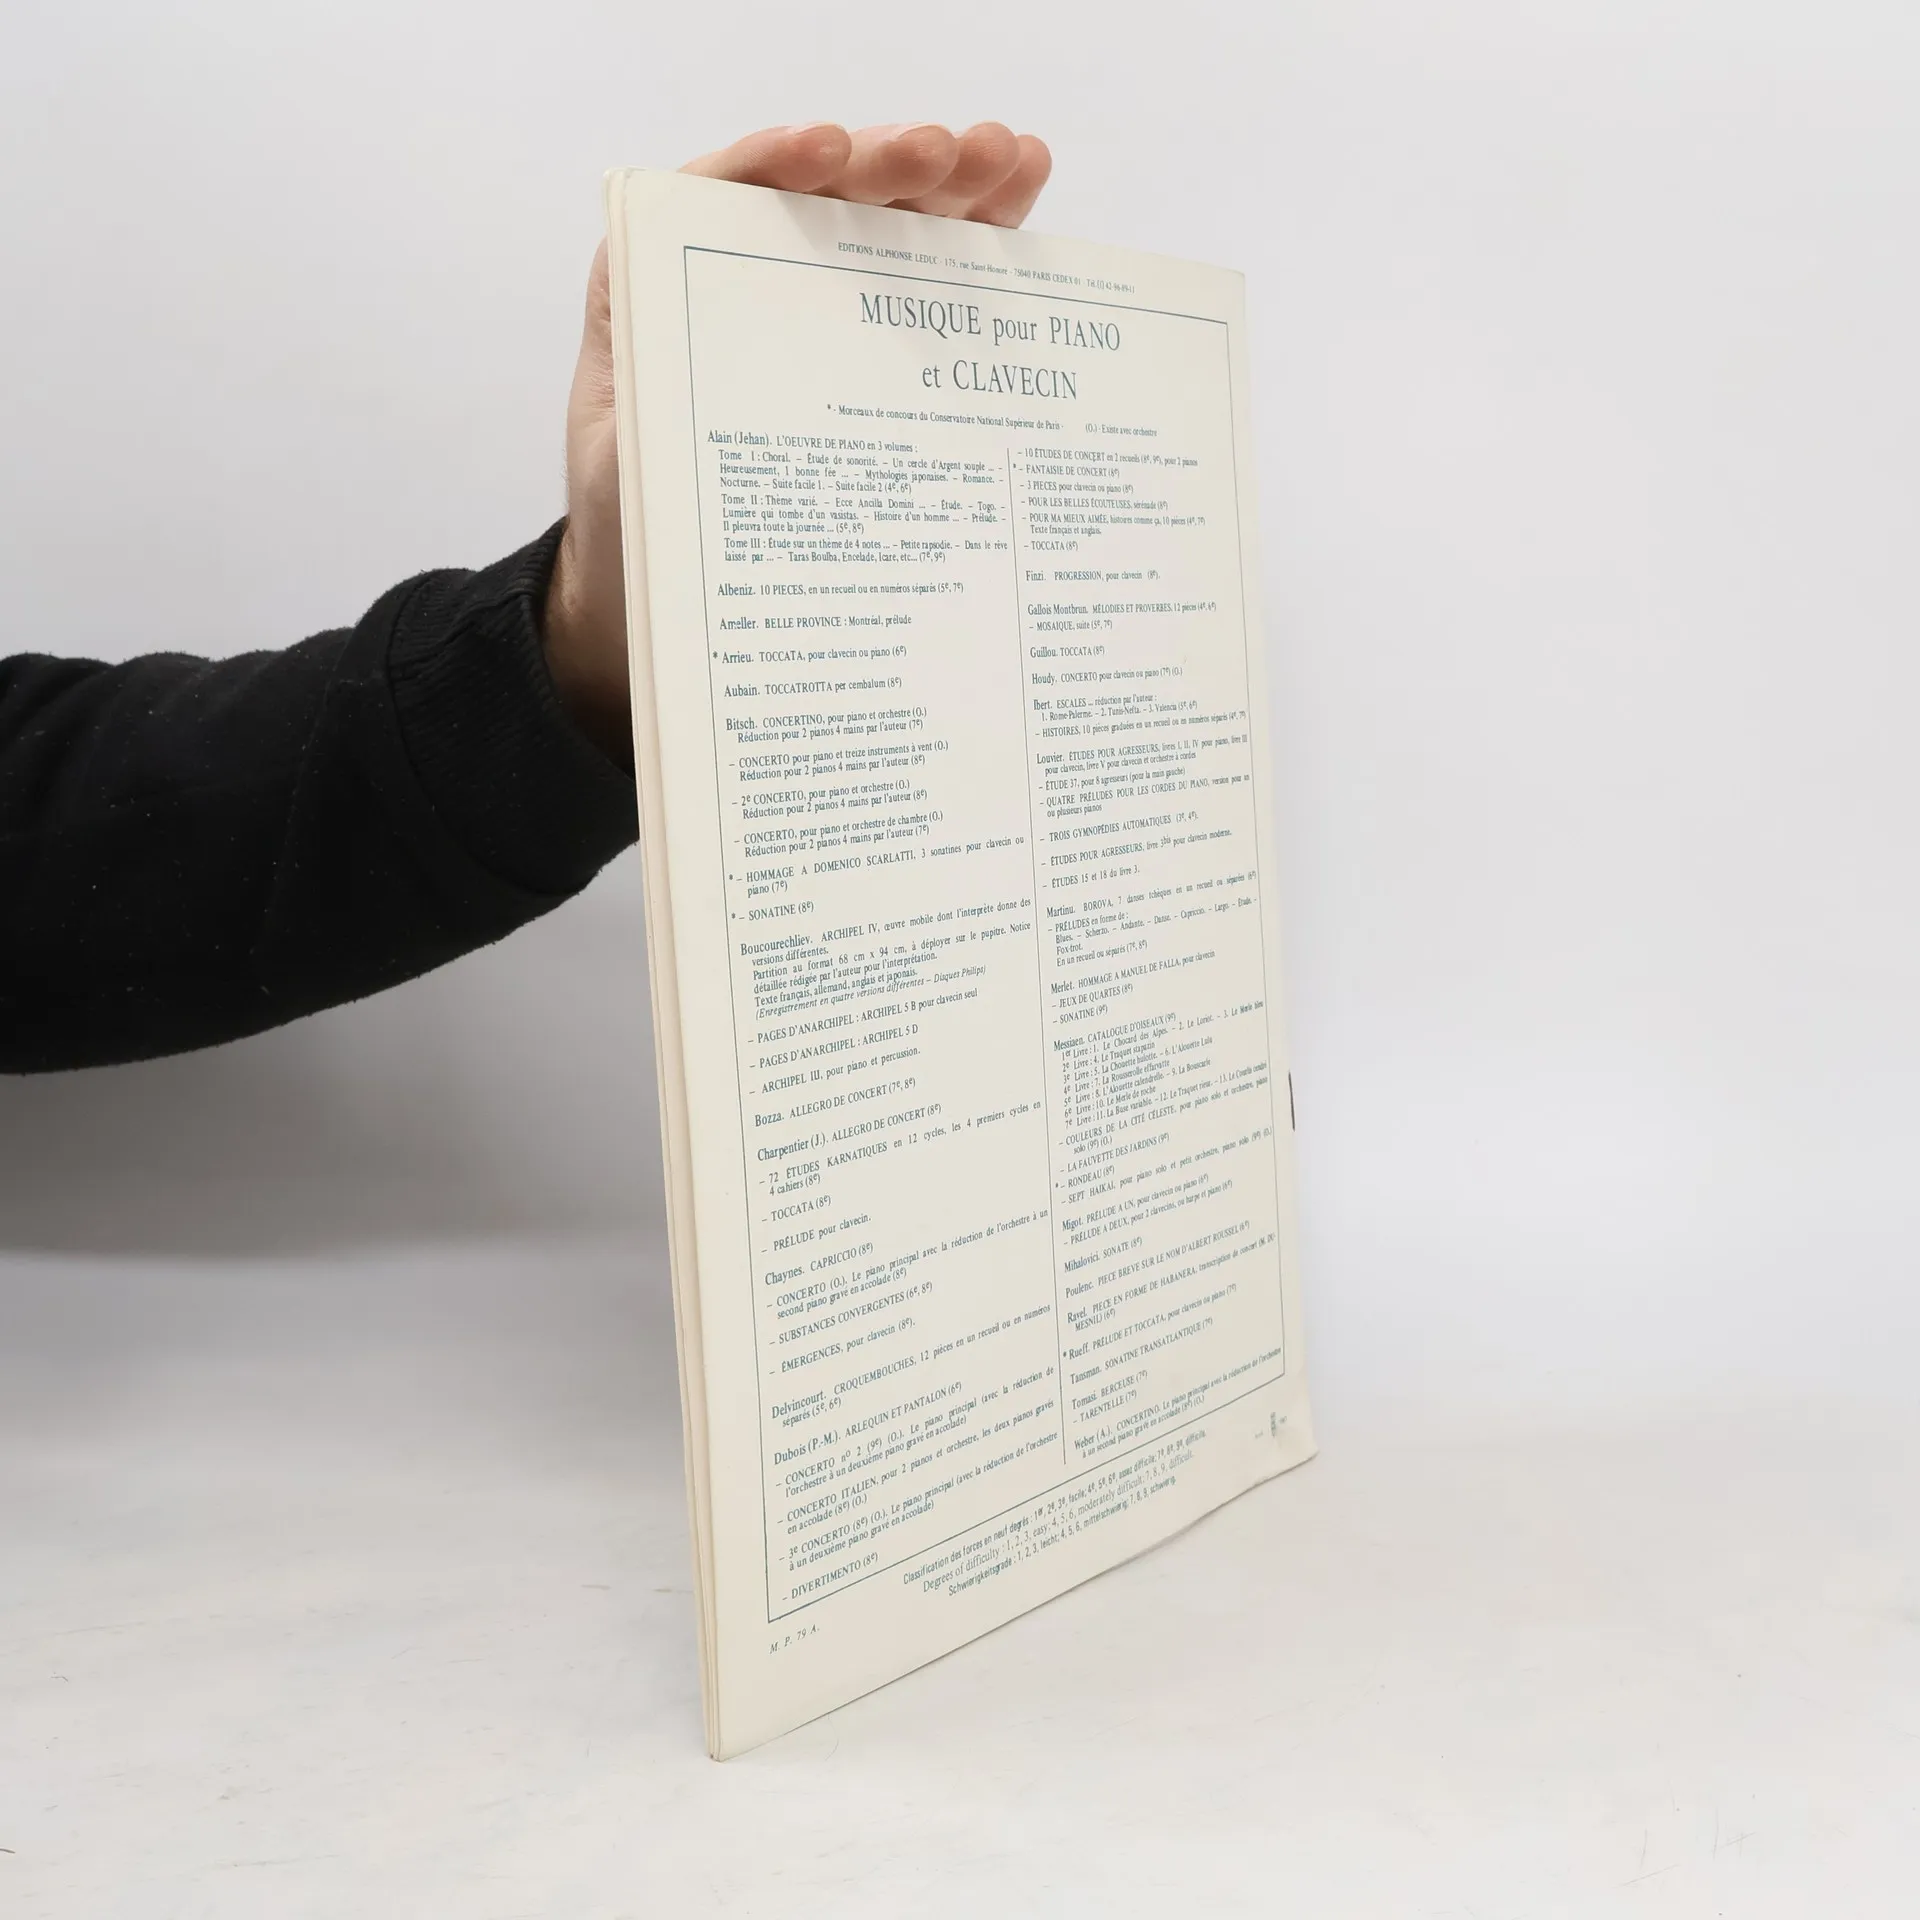 EDITIONS ALPHONSE LEDUC - 175, rue Saint-Honoré - 75040 PARIS CEDEX 01 - Tél. (1) 42-96-89-11
MUSIQUE pour PIANO
et CLAVECIN
* - Morceaux de concours du Conservatoire National Supérieur de Paris - (O.) - Existe avec orchestre
Alain (Jehan). L'OEUVRE DE PIANO en 3 volumes :
Tome I : Choral. – Étude de sonorité. – Un cercle d'Argent souple ... –
Heureusement, 1 bonne fée ... – Mythologies japonaises. – Romance. –
Nocturne. – Suite facile 1. – Suite facile 2 (4e, 6e)
Tome II : Thème varié. – Ecce Ancilla Domini ... – Étude. – Togo. –
Lumière qui tombe d'un vasistas. – Histoire d'un homme ... – Prélude. –
Il pleuvra toute la journée ... (5e, 8e)
Tome III : Étude sur un thème de 4 notes ... – Petite rapsodie. – Dans le rêve
laissé par ... – Taras Boulba, Encelade, Icare, etc... (7e, 9e)
Albeniz. 10 PIECES, en un recueil ou en numéros séparés (5e, 7e)
Ameller. BELLE PROVINCE : Montréal, prélude
* Arrieu. TOCCATA, pour clavecin ou piano (6e)
Aubain. TOCCATROTTA per cembalum (8e)
Bitsch. CONCERTINO, pour piano et orchestre (O.)
Réduction pour 2 pianos 4 mains par l'auteur (7e)
– CONCERTO pour piano et treize instruments à vent (O.)
Réduction pour 2 pianos 4 mains par l'auteur (8e)
– 2e CONCERTO, pour piano et orchestre (O.)
Réduction pour 2 pianos 4 mains par l'auteur (8e)
– CONCERTO, pour piano et orchestre de chambre (O.)
Réduction pour 2 pianos 4 mains par l'auteur (7e)
* – HOMMAGE A DOMENICO SCARLATTI, 3 sonatines pour clavecin ou
piano (7e)
* – SONATINE (8e)
Boucourechliev. ARCHIPEL IV, œuvre mobile dont l'interprète donne des
versions différentes.
Partition au format 68 cm x 94 cm, à déployer sur le pupitre. Notice
détaillée rédigée par l'auteur pour l'interprétation.
Texte français, allemand, anglais et japonais.
(Enregistrement en quatre versions différentes – Disques Philips)
– PAGES D'ANARCHIPEL : ARCHIPEL 5 B pour clavecin seul
– PAGES D'ANARCHIPEL : ARCHIPEL 5 D
– ARCHIPEL III, pour piano et percussion.
Bozza. ALLEGRO DE CONCERT (7e, 8e)
Charpentier (J.). ALLEGRO DE CONCERT (8e)
– 72 ÉTUDES KARNATIQUES en 12 cycles, les 4 premiers cycles en
4 cahiers (8e)
– TOCCATA (8e)
– PRÉLUDE pour clavecin.
Chaynes. CAPRICCIO (8e)
– CONCERTO (O.). Le piano principal avec la réduction de l'orchestre à un
second piano gravé en accolade (8e)
– SUBSTANCES CONVERGENTES (6e, 8e)
– ÉMERGENCES, pour clavecin (8e).
Delvincourt. CROQUEMBOUCHES, 12 pièces en un recueil ou en numéros
séparés (5e, 6e)
Dubois (P.-M.). ARLEQUIN ET PANTALON (6e)
– CONCERTO no 2 (9e) (O.). Le piano principal (avec la réduction de
l'orchestre à un deuxième piano gravé en accolade)
– CONCERTO ITALIEN, pour 2 pianos et orchestre, les deux pianos gravés
en accolade (8e) (O.)
– 3e CONCERTO (8e) (O.). Le piano principal (avec la réduction de l'orchestre
à un deuxième piano gravé en accolade)
– DIVERTIMENTO (8e)
– 10 ÉTUDES DE CONCERT en 2 recueils (8e, 9e), pour 2 pianos
* – FANTAISIE DE CONCERT (8e)
– 3 PIECES pour clavecin ou piano (8e)
– POUR LES BELLES ÉCOUTEUSES, sérénade (8e)
– POUR MA MIEUX AIMÉE, histoires comme ça, 10 pièces (4e, 7e)
Texte français et anglais.
– TOCCATA (8e)
Finzi. PROGRESSION, pour clavecin (8e).
Gallois Montbrun. MÉLODIES ET PROVERBES, 12 pièces (4e, 6e)
– MOSAIQUE, suite (5e, 7e)
Guillou. TOCCATA (8e)
Houdy. CONCERTO pour clavecin ou piano (7e) (O.)
Ibert. ESCALES ... réduction par l'auteur :
1. Rome-Palerme. – 2. Tunis-Nefta. – 3. Valencia (5e, 6e)
– HISTOIRES, 10 pièces graduées en un recueil ou en numéros séparés (4e, 7e)
Louvier. ÉTUDES POUR AGRESSEURS, livres I, II, IV pour piano, livre III
pour clavecin, livre V pour clavecin et orchestre à cordes
– ÉTUDE 37, pour 8 agresseurs (pour la main gauche)
– QUATRE PRÉLUDES POUR LES CORDES DU PIANO, version pour un
ou plusieurs pianos
– TROIS GYMNOPÉDIES AUTOMATIQUES (3e, 4e).
– ÉTUDES POUR AGRESSEURS, livre 3bis pour clavecin moderne.
– ÉTUDES 15 et 18 du livre 3.
Martinu. BOROVA, 7 danses tchèques en un recueil ou séparées (6e)
– PRÉLUDES en forme de :
Blues. – Scherzo. – Andante. – Danse. – Capriccio. – Largo. – Étude. –
Fox-trot.
En un recueil ou séparés (7e, 8e)
Merlet. HOMMAGE A MANUEL DE FALLA, pour clavecin
– JEUX DE QUARTES (8e)
– SONATINE (9e)
Messiaen. CATALOGUE D'OISEAUX (9e)
1er Livre : 1. Le Chocard des Alpes. – 2. Le Loriot. – 3. Le Merle bleu
2e Livre : 4. Le Traquet stapazin
3e Livre : 5. La Chouette hulotte. – 6. L'Alouette Lulu
4e Livre : 7. La Rousserolle effarvatte
5e Livre : 8. L'Alouette calendrelle. – 9. La Bouscarle
6e Livre : 10. Le Merle de roche
7e Livre : 11. La Buse variable. – 12. Le Traquet rieur. – 13. Le Courlis cendré
– COULEURS DE LA CITÉ CÉLESTE, pour piano solo et orchestre, piano
solo (9e) (O.)
– LA FAUVETTE DES JARDINS (9e)
* – RONDEAU (8e)
– SEPT HAIKAI, pour piano solo et petit orchestre, piano solo (9e) (O.)
Migot. PRÉLUDE A UN, pour clavecin ou piano (6e)
– PRÉLUDE A DEUX, pour 2 clavecins, ou harpe et piano (6e)
Mihalovici. SONATE (8e)
Poulenc. PIECE BREVE SUR LE NOM D'ALBERT ROUSSEL (6e)
Ravel. PIECE EN FORME DE HABANERA, transcription de concert (M. DU-
MESNIL) (6e)
* Rueff. PRÉLUDE ET TOCCATA, pour clavecin ou piano (7e)
Tansman. SONATINE TRANSATLANTIQUE (7e)
Tomasi. BERCEUSE (7e)
– TARENTELLE (7e)
Weber (A.). CONCERTINO. Le piano principal avec la réduction de l'orchestre
à un second piano gravé en accolade (8e) (O.)
Classification des forces en neuf degrés : 1er, 2e, 3e, facile; 4e, 5e, 6e, assez difficile; 7e, 8e, 9e, difficile.
Degrees of difficulty : 1, 2, 3, easy; 4, 5, 6, moderately difficult; 7, 8, 9, difficult.
Schwierigkeitsgrade : 1, 2, 3, leicht; 4, 5, 6, mittelschwierig; 7, 8, 9, schwierig.
M. P. 79 A.